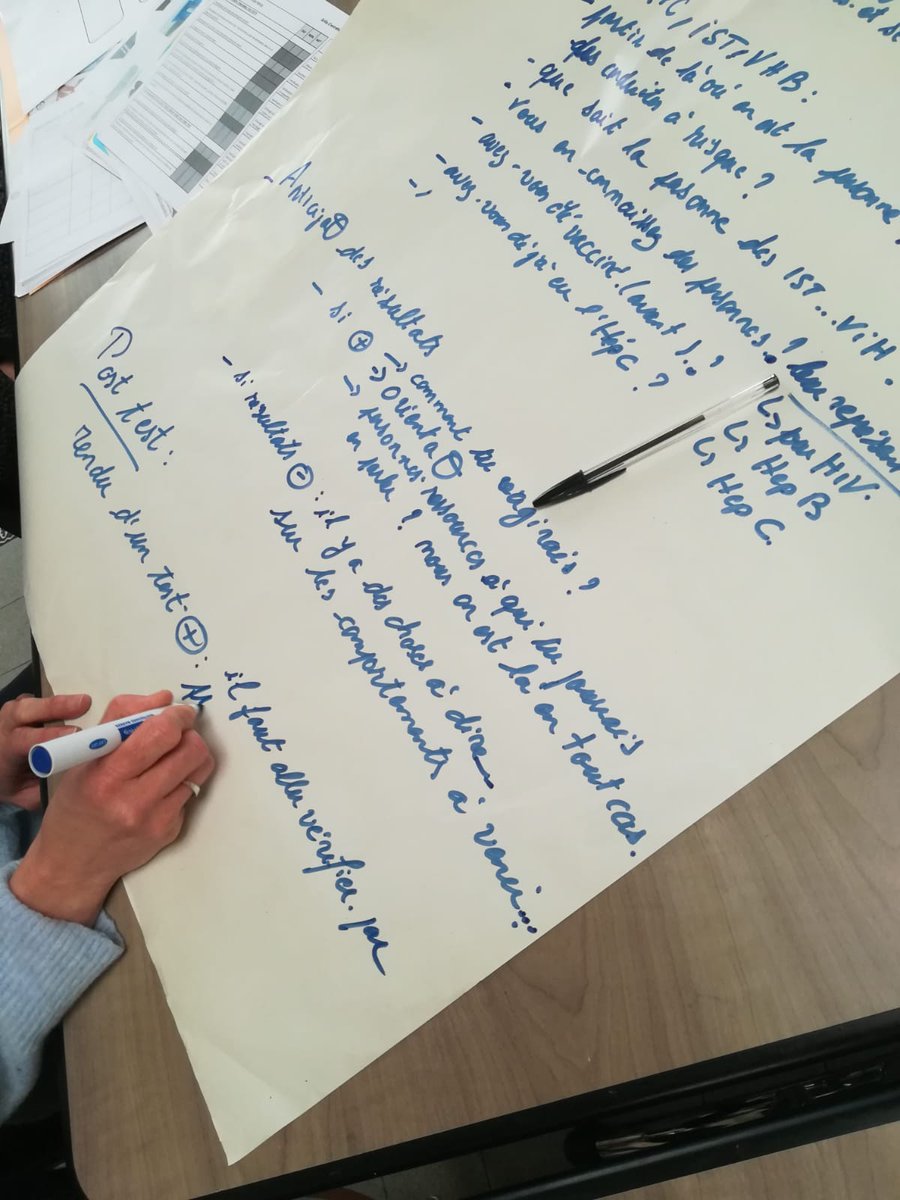 et se
C, IST, VHB :
partir de là où en est la personne ?
des conduites à risque ?
- que sait la personne des IST... VIH.
. vous en connaissez des personnes ?
- avez-vous été vacciné (avant) ?
- avez-vous déjà eu l'Hép C ?
-,
↳ par HIV.
↳ Hep B
↳ Hep C.
- Anticipat⊖ des résultats
- si ⊕ → comment tu réagirais ?
→ Orientat⊖
→ personnes ressources à qui tu pourrais
en parler ? nous on est là en tout cas.
- si résultats ⊖ : il y a des choses à dire
sur les comportements à venir...
Post test :
rendu d'un test ⊕ : il faut aller vérifier. par